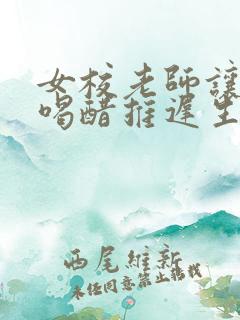 女校老師讓
喝醋推遲生
西尾維新
未經同意禁止轉載